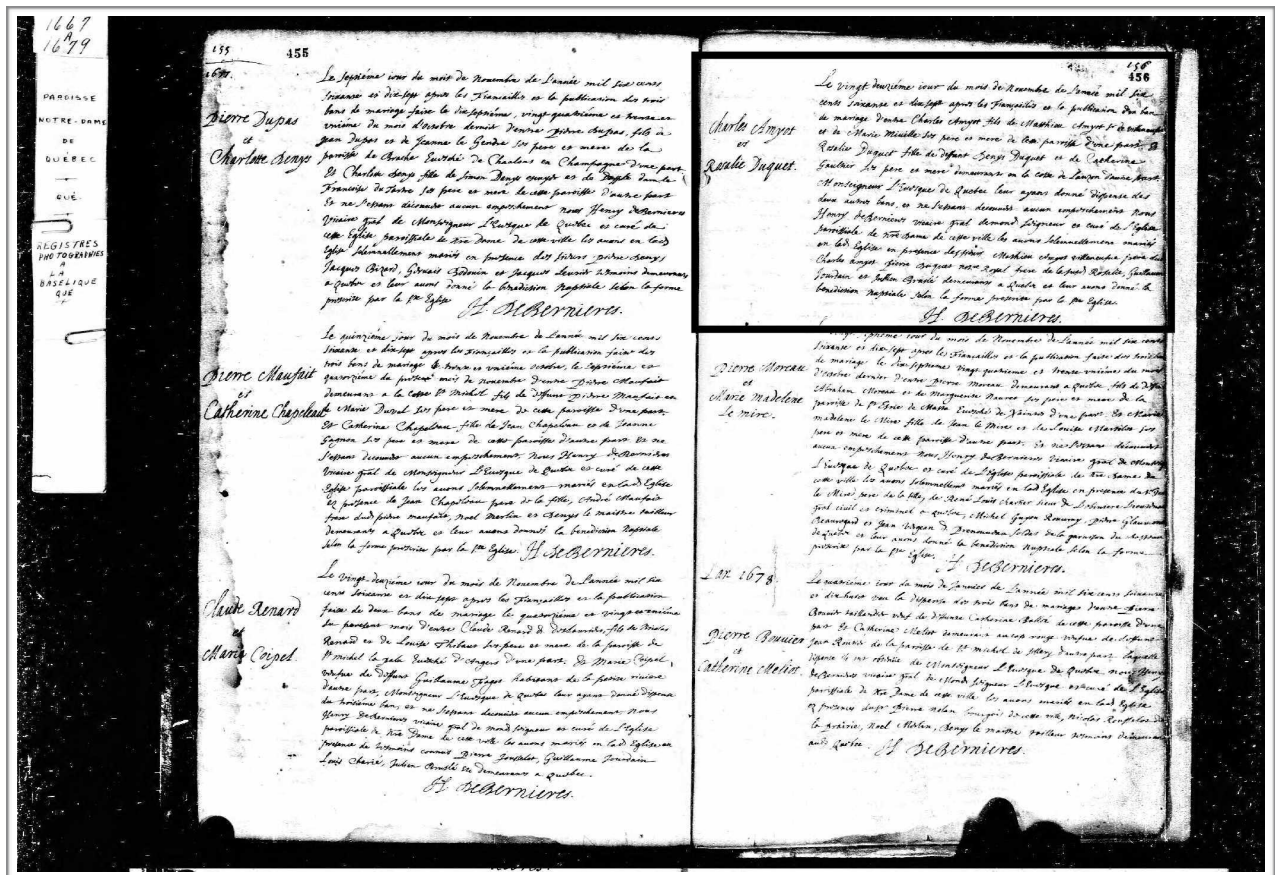 1667
A
1679
PAROISSE
NOTRE-DAME
DE
QUÉBEC
QUÉ.
REGISTRES
PHOTOGRAPHIÉS
A
LA
BASILIQUE
QUÉ
155
455
1677.
Pierre Dupas
et
Charlotte Denys
Le septiéme iour du mois de Novembre de l'année mil six cents
soixante et dix-sept apres les fiançailles et la publication des trois
bans de mariage faite le dix-septiéme, vingt quatriéme et trente et
vniéme du mois d'octobre dernier d'entre pierre Dupas, fils de
Jean Dupas et de Jeanne le Gendre ses pere et mere de la
parroisse de Eueché de Chaalons en Champagne d'vne part
Et Charlotte Denys fille de Simon Denys escuyer et de damlle
Françoise du Tartre ses pere et mere de cette parroisse d'autre part
Et ne s'estant decouuert aucun empeschement nous Henry deBernieres
vicaire gñal de Monseigneur L'Euesque de Quebec et curé de
cette Eglise parroissiale de Nre Dame de cette ville les auons en lad.
Eglise solemnellement mariés en presence des sieurs pierre Denys
Jacques Bizard, Geruais Bedouin et Jacques tesmoins demeurants
a Quebec et leur auons donné la benediction Nuptiale selon la forme
prescrite par la Ste Eglise
H. DeBernieres.
Pierre Maufait
et
Catherine Chapeleau
Le quinziéme iour du mois de Novembre de L'année mil six cents
soixante et dix-sept apres les fiançailles et la publication faite des
trois bans de mariage le trente et vniéme octobre, le septiéme et
quatorziéme du present mois de Novembre d'entre Pierre Maufait
demeurant a la Coste St Michel fils de deffunt Pierre Maufait et
de Marie Duval ses pere et mere de cette paroisse d'vne part
Et Catherine Chapeleau fille de Jean Chapeleau et de Jeanne
Gagnon ses pere et mere de cette parroisse d'autre part Et ne
s'estant decouuert aucun empeschement. Nous Henry deBernieres
Vicaire gñal de Monseigneur L'Euesque de Quebec et curé de cette
Eglise parroissiale les auons solemnellement mariés en lad. Eglise
en presence de Jean Chapeleau pere de la fille, André Maufait
frere dud. pierre maufait, Noel Merlin et Denys le maistre tailleur
demeurants a Quebec et leur auons donné la benediction Nuptiale
selon la forme prescrite par la Ste Eglise.
H DeBernieres.
Claude Renard
et
Marie Coipel.
Le Vingt-deuxiéme iour du mois de Novembre de L'année mil six
cents soixante et dix-sept apres les fiançailles et la publication
faite de deux bans de mariage le quatorziéme et vingt et vniéme
du present mois d'entre Claude Renard fils de Nicolas
Renard et de Louise Thibaut ses pere et mere de la parroisse de
St michel Euesché d'Angers d'vne part. Et Marie Coipel,
vefue de deffunt Guillaume Pagé habitant de la petite riuiere
d'autre part, Monseigneur L'Euesque de Quebec leur ayant donné dispense
du troisiéme ban, et ne s'estant decouuert aucun empeschement Nous
Henry DeBernieres vicaire gñal de mond. seigneur et curé de L'Eglise
parroissiale de Nre Dame de cette ville les auons mariés en lad. Eglise en
presence de tesmoins connus Pierre Guillaume Jourdain
Louis Julien Bruslé demeurants a Quebec.
H. DeBernieres.
156
456
Charles Amyot
et
Rosalie Duquet.
Le vingt deuxiéme iour du mois de Novembre de L'année mil six
cents soixante et dix-sept apres les fiançailles et la publication d'un ban
de mariage d'entre Charles Amyot fils de Matthieu Amyot Sr de villeneufue
et de Marie Miuille ses pere et mere de cette parroisse d'vne part, Et
Rosalie Duquet fille de deffunt Denys Duquet et de Catherine
Gaultier ses pere et mere demeurants en la coste de Lauzon d'autre part
Monseigneur L'Euesque de Quebec leur ayant donné dispense des
deux autres bans, et ne s'estant decouuert aucun empeschement Nous
Henry deBernieres vicaire gñal de mond. Seigneur et curé de L'Eglise
parroissiale de Nre Dame de cette ville les auons solemnellement mariés
en lad. Eglise en presence des sieurs Mathieu Amyot villeneufue pere dud.
Charles Amyot, pierre Duquet notre Royal frere de la susd. Rosalie, Guillaume
Jourdain et Julien Bruslé demeurants a Quebec et leur auons donné la
benediction Nuptiale selon la forme prescrite par la Ste Eglise.
H. DeBernieres.
Pierre Moreau
et
Marie Madelene
Le mire.
iour du mois de Novembre de L'année mil six cents
soixante et dix-sept apres les fiançailles et la publication faite des trois bans
de mariage le dix-septiéme vingt quatriéme et trente vniéme du mois
d'octobre dernier d'entre pierre Moreau demeurant a Quebec, fils de deffunt
Abraham Moreau et de Marguerite ses pere et mere de la
parroisse de Euesché de d'vne part. Et Marie
madelene le Mire fille de Jean le Mire et de Louise Marsolet ses
pere et mere de cette parroisse d'autre part. Et ne s'estant decouuert
aucun empeschement Nous Henry deBernieres Vicaire gñal de Monseigr
L'Euesque de Quebec et curé de L'Eglise parroissiale de Nre Dame de
cette ville les auons solemnellement mariés en lad. Eglise en presence du Sr Jean
le Mire pere de la fille, de René Louis chartier sieur de Lotbiniere
gñal ciuil et criminel a Quebec, Michel Guyon Rouuray, Pierre
Beauregard et Jean soldat de la garnison du
de Quebec et leur auons donné la benediction Nuptiale selon la forme
prescrite par la Ste Eglise.
H DeBernieres.
L'an 1678.
Pierre Bouuier
et
Catherine Meslot.
Le quatriéme iour du mois de Januier de L'année mil six cents soixante
et dix huit veu la dispense des trois bans de mariage d'entre Pierre
Bouuier taillandier veuf de deffunte Catherine de cette parroisse d'vne
part Et Catherine Meslot demeurant au cap rouge vefue de deffunt
Jean Routier de la parroisse de St michel de Sillery d'autre part laquelle
dispense ils ont obtenue de Monseigneur L'Euesque de Quebec, nous Henry
de Bernieres vicaire gñal de Mond. Seigneur L'Euesque et curé de L'Eglise
parroissiale de Nre Dame de cette ville les auons mariés en lad. Eglise
en presence du Sr Pierre Nolan bourgeois de cette ville, Nicolas Rousselot de
la prairie, Noel Merlin, Denys le maistre tailleur tesmoins demeurants
aud. Quebec.
H DeBernieres.